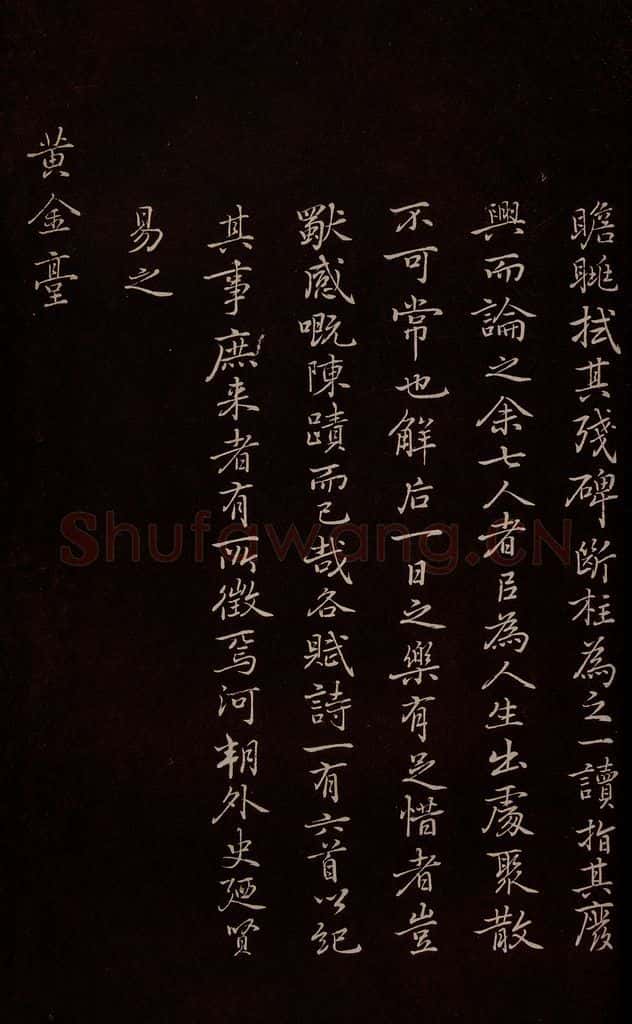 瞻眺拭其残碑断柱為之一讀指其廢
興而論之余七人者㠯為人生出處聚散
不可常也解后一日之樂有足惜者豈
獣感嘅陳蹟而已哉各賦詩一有六首以紀
其事庶来者有所徵焉河朔外史廼賢
易之
黄金臺
Shufawang.CN